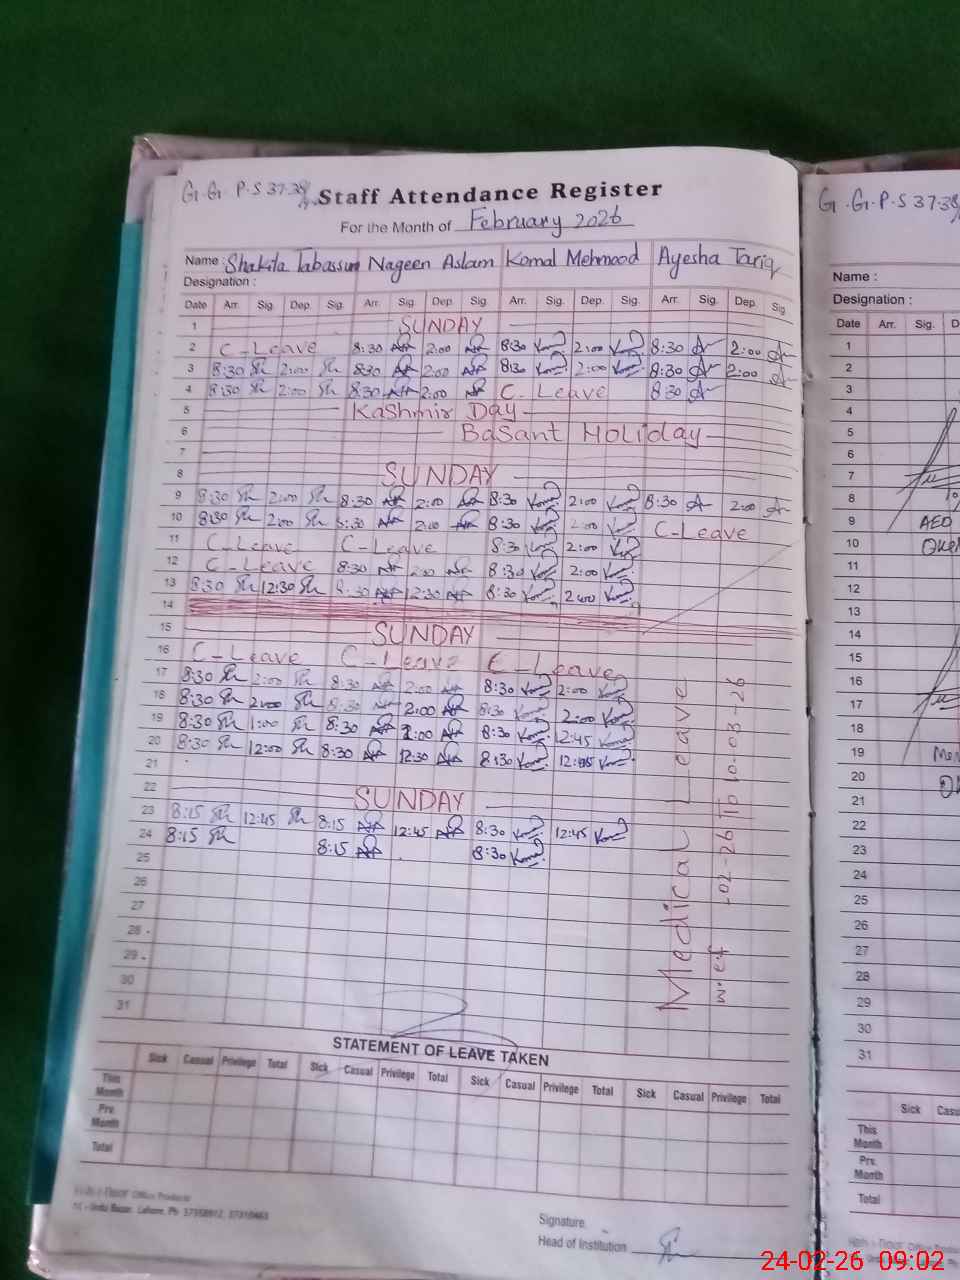 G.G.P.S 37-38/
Staff Attendance Register
For the Month of February 2026
Name : Shakila Tabassum Nageen Aslam Komal Mehmood Ayesha Tariq
Designation :
Date Arr. Sig. Dep. Sig. Arr. Sig. Dep. Sig. Arr. Sig. Dep. Sig. Arr. Sig. Dep. Sig
1 SUNDAY
2 C-Leave 8:30 2:00 8:30 2:00 8:30 2:00
3 8:30 2:00 8:30 2:00 8:30 2:00 8:30 2:00
4 8:30 2:00 8:30 2:00 C. Leave 8:30
5 Kashmir Day
6 Basant Holiday
7
8 SUNDAY
9 8:30 2:00 8:30 2:00 8:30 2:00 8:30 2:00
10 8:30 2:00 8:30 2:00 8:30 2:00 C-Leave
11 C-Leave C-Leave 8:30 2:00
12 C-Leave 8:30 8:30 2:00
13 8:30 12:30 8:30 12:30 8:30 2:00
14
15 SUNDAY
16 C-Leave C-Leave C-Leave
17 8:30 2:00 8:30 2:00 8:30 2:00
18 8:30 2:00 8:30 2:00 8:30 2:00
19 8:30 1:00 8:30 1:00 8:30 12:45
20 8:30 12:00 8:30 12:30 8:30 12:45
21
22 SUNDAY
23 8:15 12:45 8:15 12:45 8:30 12:45
24 8:15 8:15 8:30
25
26
27
28
29
30
31
Medical Leave
w.e.f -02-26 To 10-03-26
STATEMENT OF LEAVE TAKEN
Sick Casual Privilege Total Sick Casual Privilege Total Sick Casual Privilege Total Sick Casual Privilege Total
This Month
Prv. Month
Total
Urdu Bazar, Lahore. Ph:
Signature
Head of Institution
G.G.P.S 37-38/
Name :
Designation :
Date Arr. Sig.
1
2
3
4
5
6
7
8
9 AED
10
11
12
13
14
15
16
17
18
19
20
21
22
23
24
25
26
27
28
29
30
31
Sick
This Month
Prv. Month
Total
24-02-26 09:02